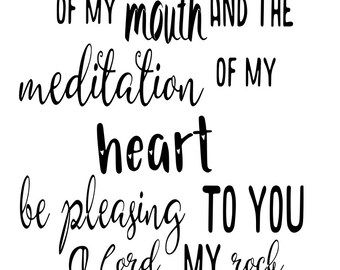 OF MY mouth AND THE
meditation OF MY
heart
be pleasing TO YOU
O Lord, MY rock